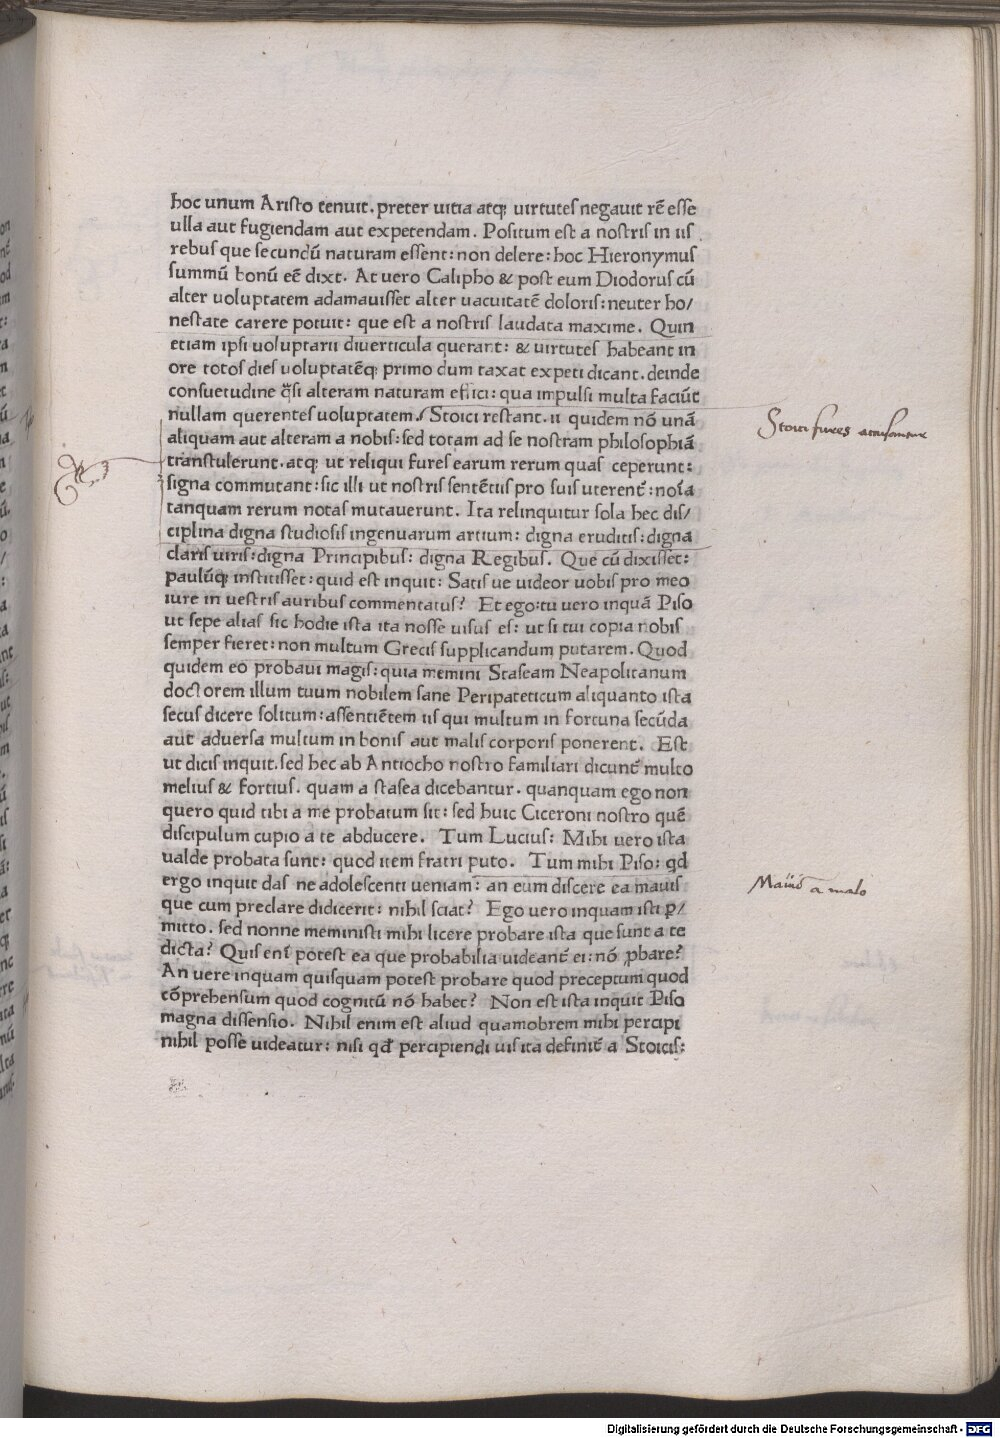 hoc unum Aristo tenuit. preter uitia atq; uirtutes negauit rē esse
ulla aut fugiendam aut expetendam. Positum est a nostris in iis
rebus que secundū naturam essent: non delere: hoc Hieronymus
summū bonū eē dixt. At uero Calipho & post eum Diodorus cū
alter uoluptatem adamauisset alter uacuitatē doloris: neuter ho/
nestate carere potuit: que est a nostris laudata maxime. Quin
etiam ipsi uoluptarii diuerticula querant: & uirtutes habeant in
ore totos dies uoluptatēq; primo dum taxat expeti dicant. deinde
consuetudine q̄si alteram naturam effici: qua impulsi multa faciūt
nullam querentes uoluptatem. Stoici restant. ii quidem nō unā
aliquam aut alteram a nobis: sed totam ad se nostram philosophiā
transtulerunt. atq; ut reliqui fures earum rerum quas ceperunt:
signa commutant: sic illi ut nostris sentētiis pro suis uterent̄: noīa
tanquam rerum notas mutauerunt. Ita relinquitur sola hec dis/
ciplina digna studiosis ingenuarum artium: digna eruditis: digna
claris uiris: digna Principibus: digna Regibus. Que cū dixisset:
paulūq; institisset: quid est inquit: Satis ue uideor uobis pro meo
iure in uestris auribus commentatus? Et ego: tu uero inquā Piso
ut sepe alias sic hodie ista ita nosse uisus es: ut si tui copia nobis
semper fieret: non multum Grecis supplicandum putarem. Quod
quidem eo probaui magis: quia memini Staseam Neapolitanum
doctorem illum tuum nobilem sane Peripateticum aliquanto ista
secus dicere solitum: assentiētem iis qui multum in fortuna secūda
aut aduersa multum in bonis aut malis corporis ponerent. Est
ut dicis inquit. sed hec ab Antiocho nostro familiari dicunt̄ multo
melius & fortius. quam a stasea dicebantur. quanquam ego non
quero quid tibi a me probatum sit: sed huic Ciceroni nostro quē
discipulum cupio a te abducere. Tum Lucius: Mihi uero ista
ualde probata sunt: quod item fratri puto. Tum mihi Piso: qd
ergo inquit das ne adolescenti ueniam: an eum discere ea mauis
que cum preclare didicerit: nihil sciat? Ego uero inquam isti ꝑ/
mitto. sed nonne meministi mihi licere probare ista que sunt a te
dicta? Quis eni potest ea que probabilia uideant̄ ei: nō ꝓbare?
An uere inquam quisquam potest probare quod preceptum quod
cōprehensum quod cognitū nō habet? Non est ista inquit Piso
magna dissensio. Nihil enim est aliud quamobrem mihi percipi
nihil posse uideatur: nisi qd percipiendi uis ita definit̄ a Stoicis:
Stoici fures
a malo
Digitalisierung gefördert durch die Deutsche Forschungsgemeinschaft - DFG